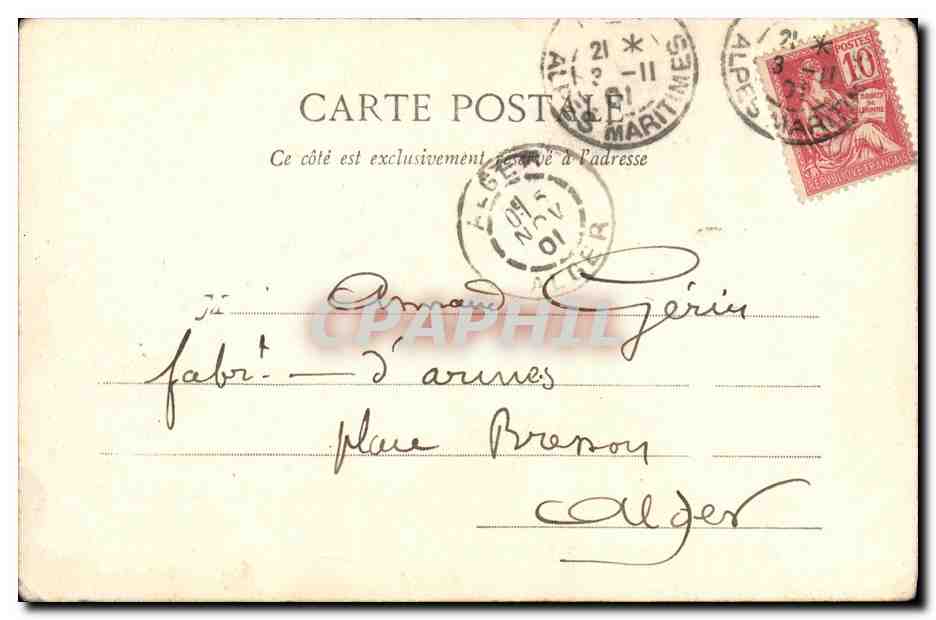 21 * 3 -11 01 ALPES MARITIMES
21 * 3 -11 ALPES MARITIMES
POSTES 10
DROITS DE L'HOMME
REPUBLIQUE FRANÇAISE
CARTE POSTALE
Ce côté est exclusivement réservé à l'adresse
ALGER
5
NOV
01
ALGER
M Armand Gérin
CPAPHIL
fabrt — d'armes
place Bresson
Alger